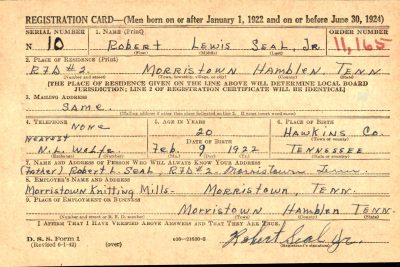 REGISTRATION CARD—(Men born on or after January 1, 1922 and on or before June 30, 1924)
SERIAL NUMBER 1. NAME (Print) ORDER NUMBER
N 10 ROBERT LEWIS SEAL, JR. 11,165
(First) (Middle) (Last)
2. PLACE OF RESIDENCE (Print)
RFD #2. MORRISTOWN HAMBLEN TENN.
(Number and street) (Town, township, village, or city) (County) (State)
[THE PLACE OF RESIDENCE GIVEN ON THE LINE ABOVE WILL DETERMINE LOCAL BOARD
JURISDICTION; LINE 2 OF REGISTRATION CERTIFICATE WILL BE IDENTICAL]
3. MAILING ADDRESS
SAME.
[Mailing address if other than place indicated on line 2. If same insert word same]
4. TELEPHONE 5. AGE IN YEARS 6. PLACE OF BIRTH
NONE 20 HAWKINS CO.
NEAREST DATE OF BIRTH (Town or county)
N.L. Feb. 9 1922 TENNESSEE
(Exchange) (Number) (Mo.) (Day) (Yr.) (State or country)
7. NAME AND ADDRESS OF PERSON WHO WILL ALWAYS KNOW YOUR ADDRESS
(Father) Robert L. SEAL, RFD #2 - Morristown, Tenn.
8. EMPLOYER'S NAME AND ADDRESS
MORRISTOWN KNITTING MILLS - MORRISTOWN, TENN.
9. PLACE OF EMPLOYMENT OR BUSINESS
MORRISTOWN HAMBLEN TENN.
(Number and street or R. F. D. number) (Town) (County) (State)
I AFFIRM THAT I HAVE VERIFIED ABOVE ANSWERS AND THAT THEY ARE TRUE.
D. S. S. Form 1
(Revised 6-1-42) (over) Robert Seal Jr.
(Registrant's signature)